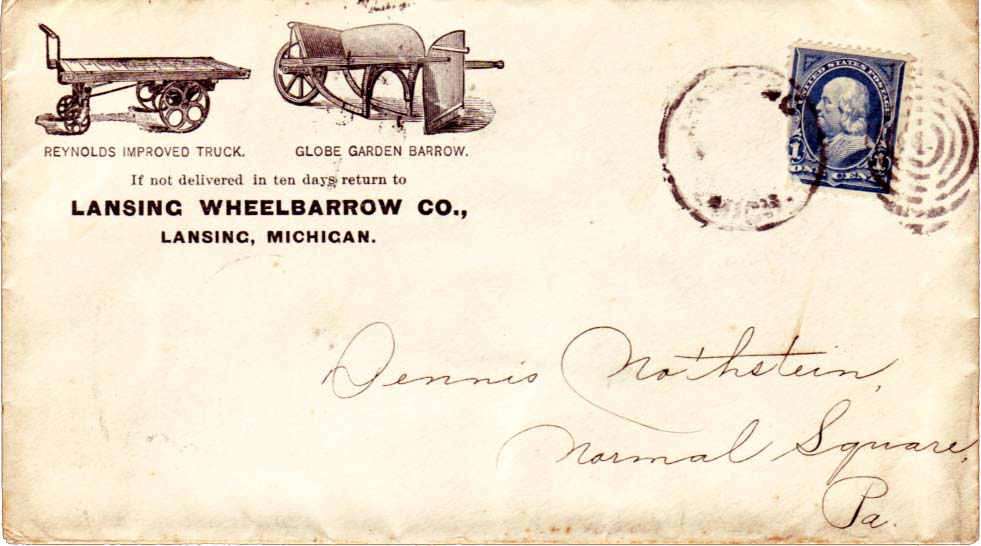 REYNOLDS IMPROVED TRUCK.
GLOBE GARDEN BARROW.
If not delivered in ten days, return to
LANSING WHEELBARROW CO.,
LANSING, MICHIGAN.
UNITED STATES POSTAGE
1
ONE CENT
Dennis Nothstein,
Normal Square,
Pa.